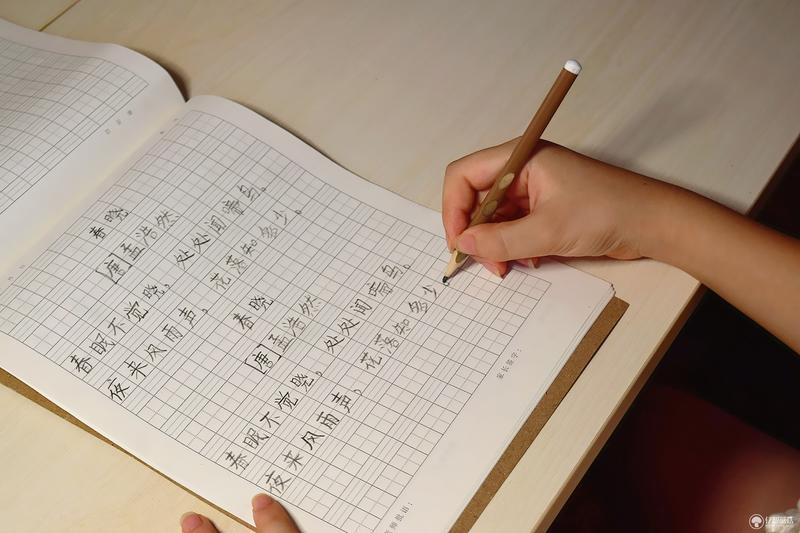 春晓
[唐]孟浩然
春眠不觉晓，处处闻啼鸟。
夜来风雨声，花落知多少。
春晓
[唐]孟浩然
春眠不觉晓，处处闻啼鸟。
夜来风雨声，花落知多少
家长签字：
师批语：